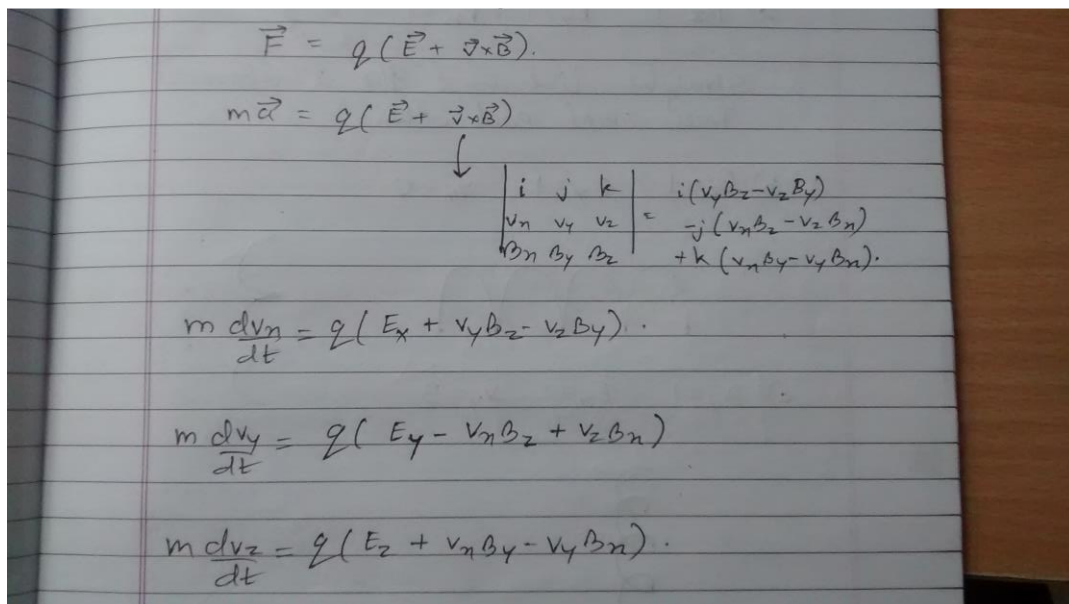 F⃗ = q(E⃗ + v⃗×B⃗).
ma⃗ = q(E⃗ + v⃗×B⃗)
↓
| i j k | = i(vyBz-vzBy)
| vx vy vz | -j(vxBz-vzBx)
| Bx By Bz | +k(vxBy-vyBx).
m dvx/dt = q(Ex + vyBz - vzBy).
m dvy/dt = q(Ey - vxBz + vzBx)
m dvz/dt = q(Ez + vxBy - vyBx).